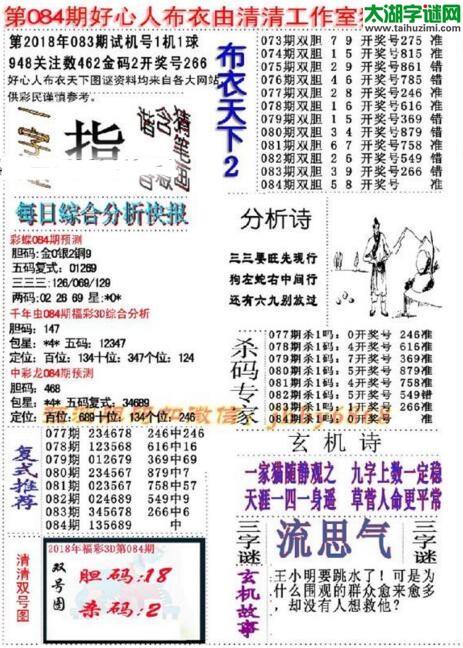 第084期好心人布衣由清清工作室
太湖字谜网
www.taihuzimi.com
第2018年083期试机号1机1球
948关注数462金码2开奖号266
好心人布衣天下图谜资料均来自各大网站
供彩民谨慎参考。
一字
指
每日綜合分析快报
彩蝶084期预测
胆码:金0银2铜9
五码复式: 01269
三三三:126/069/129
两码:02 26 69 星:*0*
千年虫084期福彩3D综合分析
胆码: 147
包星: *4* 五码: 12347
定位: 百位: 134十位: 347个位: 124
中彩龙084期预测
胆码: 468
包星: *4* 五码复式: 34689
定位: 百位: 689十位: 134个位: 246
复式推荐
077期 234678 246中246
078期 123568 616中16
079期 012679 369中69
080期 234567 879中7
081期 023567 758中57
082期 024689 549中9
083期 345678 266中6
084期 135689 中
清清双号图
2018年福彩3D第084期
双号图
胆码:18
杀码:2
布衣天下2
073期双胆 7 9 开奖号275 准
074期双胆 1 5 开奖号815 准
075期双胆 2 9 开奖号861 错
076期双胆 2 7 开奖号784 准
077期双胆 2 8 开奖号246 准
078期双胆 1 6 开奖号616 准
079期双胆 1 5 开奖号369 错
080期双胆 3 4 开奖号879 错
081期双胆 6 7 开奖号758 准
082期双胆 2 6 开奖号549 错
083期双胆 3 9 开奖号266 错
084期双胆 5 8 开奖号 准
分析诗
三三要旺先现行
狗左蛇右中间行
还有六九别放过
杀码专家
077期杀1码: 0开奖号 246准
078期杀1吗: 4开奖号 616准
079期杀1码: 7开奖号 369准
080期杀1码: 6开奖号 879准
081期杀1码: 4开奖号 758准
082期杀1码: 5开奖号 549错
083期杀1码: 0开奖号 266准
084期杀1码: 1开奖号 准
玄机诗
一家猫随静观之 九字上数一定稳
天涯一四一身遥 草菅人命更平常
三字谜
流思气
三字谜
玄机故事
王小明要跳水了！可是为
什么围观的群众愈来愈多
，却没有人想救他？